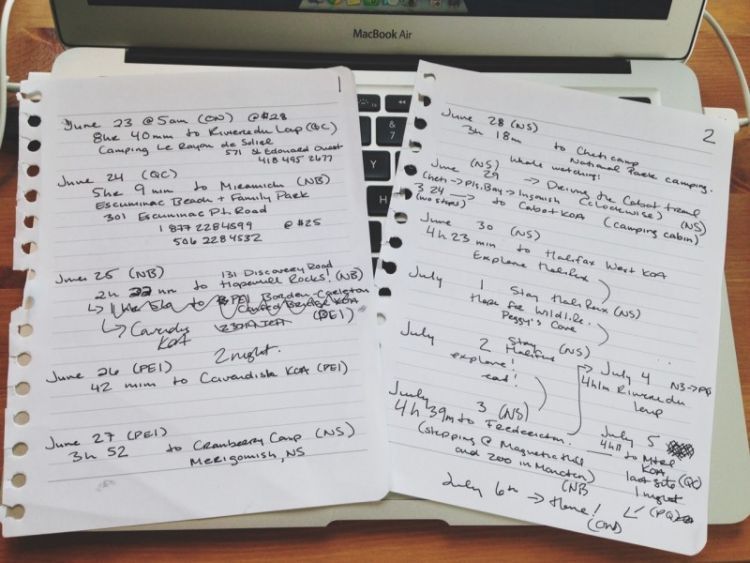 MacBook Air
1
June 23 @ 5am (ON) @ $28
8hr 40 min to Riviere du Loup (QC)
Camping Le Rayon de Soleil
571 St Edouard Ouest
418 495 2677
June 24 (QC)
5hr 9 min to Miramichi (NB)
Escuminac Beach + Family Park
301 Escuminac Pt. Road
1 877 2284599 @ $25
506 2284532
June 25 (NB) 131 Discovery Road
2h 22 min to Hopewell Rocks! (NB)
to PEI Borden-Carleton
KOA
(PEI)
Cavendish
KOA
2 night.
June 26 (PEI)
42 mim to Cavandish KOA (PEI)
June 27 (PEI)
3h 52 to Cranberry Camp (NS)
Merigomish, NS
2
June 28 (NS)
3h 18m to Cheticamp
National Park camping.
Whale watching!
June 29 (NS) → Driving the Cabot trail
(Cheti → Pls. Bay → Ingonish (clockwise) (NS)
3 24 → to Cabot KOA (camping cabin)
(no stops)
June 30 (NS)
4h 23 min to Halifax West KOA
Explore Halifax
July 1 Stay Halifax (NS)
Hope for Wildlife.
Peggy's Cove
July 2 Stay (NS)
Halifax
explore!
eat!
July 3 (NS)
4h 39m to Fredericton.
(stopping @ Magnetic Hill
and zoo in Moncton)
(NB
→ July 4 NB→PQ
4h1m Riviere du
Loup
July 5
4h11 to Mtrl
KOA
last site (QC)
1 night
(PQ)
July 6th → Home!
(ON)
&
7
Y
H